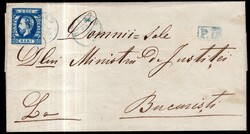 BANI
Domnii-Sale
P.D.
Dlui Ministru de Justiției
La
Bucuresti